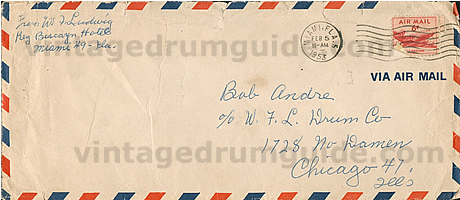 From W. F. Ludwig
Key Biscayn Hotel
Miami 49 - Fla.
MIAMI, FLA.
FEB 5
11-AM
1953
AIR MAIL
VIA AIR MAIL
vintagedrumguide.com
Bob Andre
c/o W. F. L. Drum Co
1728 No Damen
Chicago 47.
Ills
vintagedrumguide.com